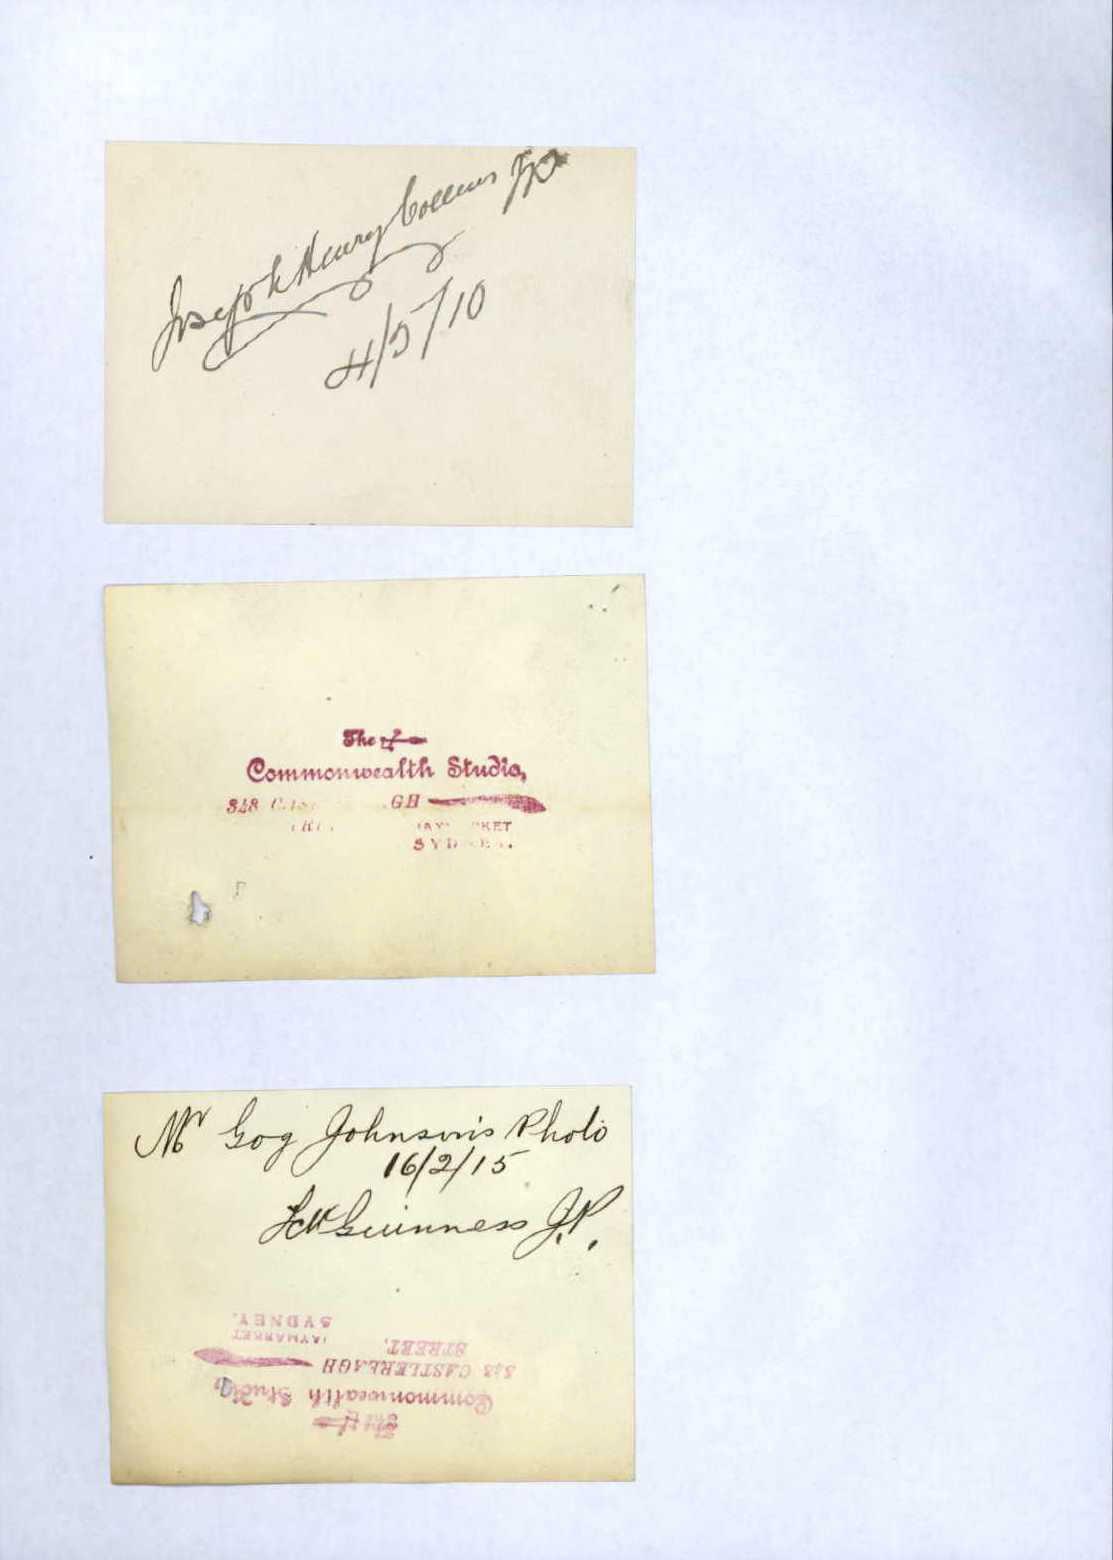 Joseph Henry Collins JP
4/5/10
The
Commonwealth Studio,
348 GH
SYD
Mr Gog Johnson's Photo
16/2/15
McGuinness J.P.
The
Commonwealth Studio,
348 CASTLEREAGH
STREET,
HAYMARKET
SYDNEY.